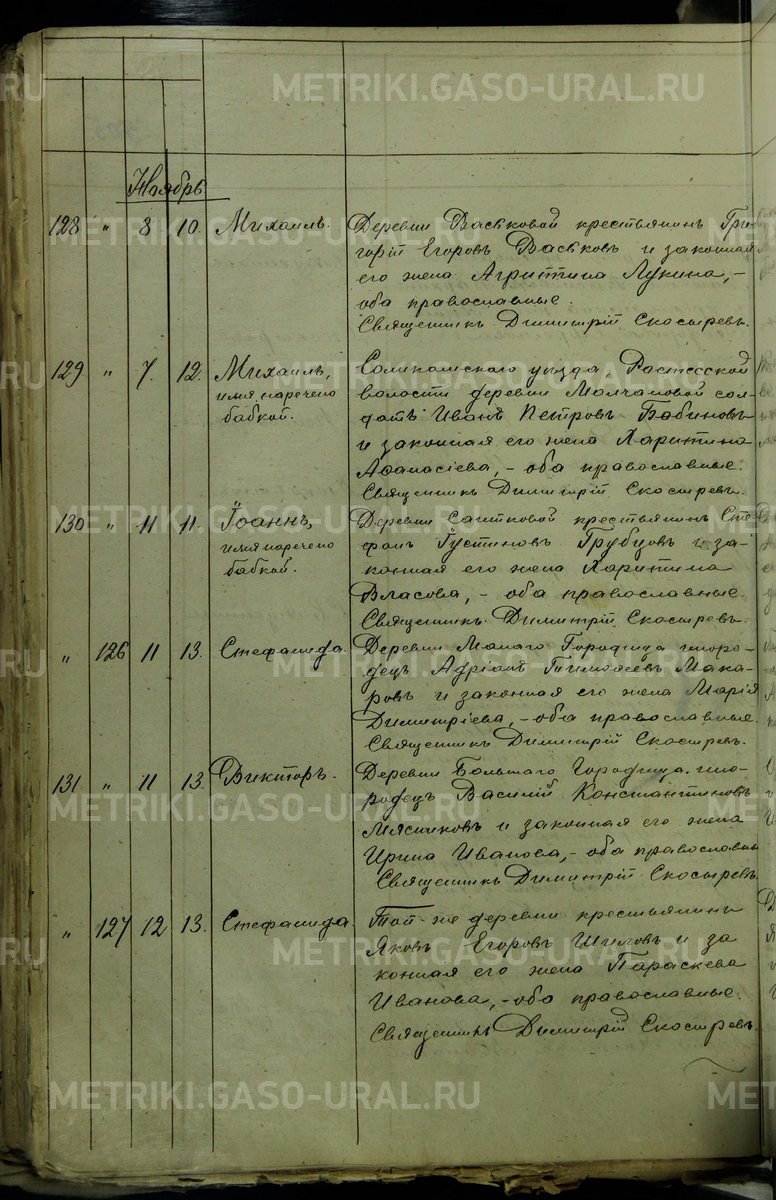 METRIKI.GASO-URAL.RU
Ноябрь
128 " 8 10. Михаилъ. Деревни Васьковой крестьянинъ Гри-
горій Егоровъ Васьковъ и законная
его жена Агриппина Лукина, –
оба православные.
Священникъ Димитрій Скосыревъ.
129 " 7. 12. Михаилъ, Соликамскаго уѣзда, Растесской
имя наречено волости деревни Молчановой сол-
бабкой. датъ Иванъ Петровъ Бабиновъ
и законная его жена Харитина
Афанасіева, – оба православные.
Священникъ Димитрій Скосыревъ.
130 " 11 11. Іоаннъ, Деревни крестьянинъ Сте-
имя наречено фанъ Іустиновъ Грубцовъ и за-
бабкой. конная его жена Харитина
Власова, – оба православные.
Священникъ Димитрій Скосыревъ.
" 126 11 13. Стефанида. Деревни Малаго Городища иноро-
децъ Адріанъ Тимофеевъ Мака-
ровъ и законная его жена Марія
Димитріева, – оба православные.
Священникъ Димитрій Скосыревъ.
131 " 11 13. Викторъ. Деревни Большаго Городища ино-
родецъ Василій Константиновъ
Мясниковъ и законная его жена
Ирина Иванова, – оба православны
Священникъ Димитрій Скосыревъ.
" 127 12 13. Стефанида. Той-же деревни крестьянинъ
Яковъ Егоровъ Шиловъ и за
конная его жена Параскева
Иванова, – оба православные.
Священникъ Димитрій Скосыревъ.
METRIKI.GASO-URAL.RU